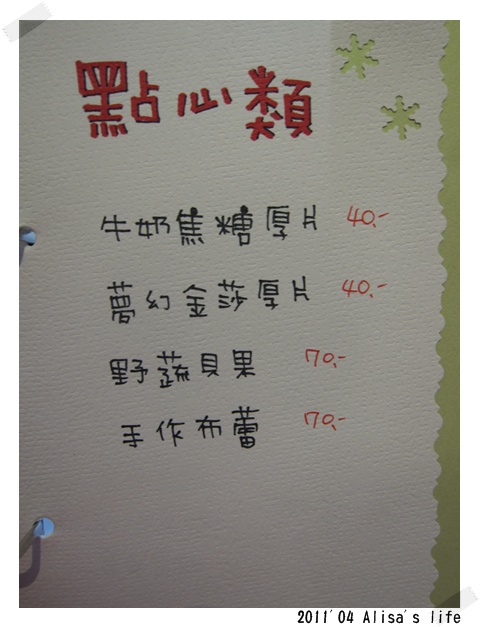 點心類
牛奶焦糖厚片 40.-
夢幻金莎厚片 40.-
野蔬貝果 70.-
手作布蕾 70.-
2011'04 Alisa's life